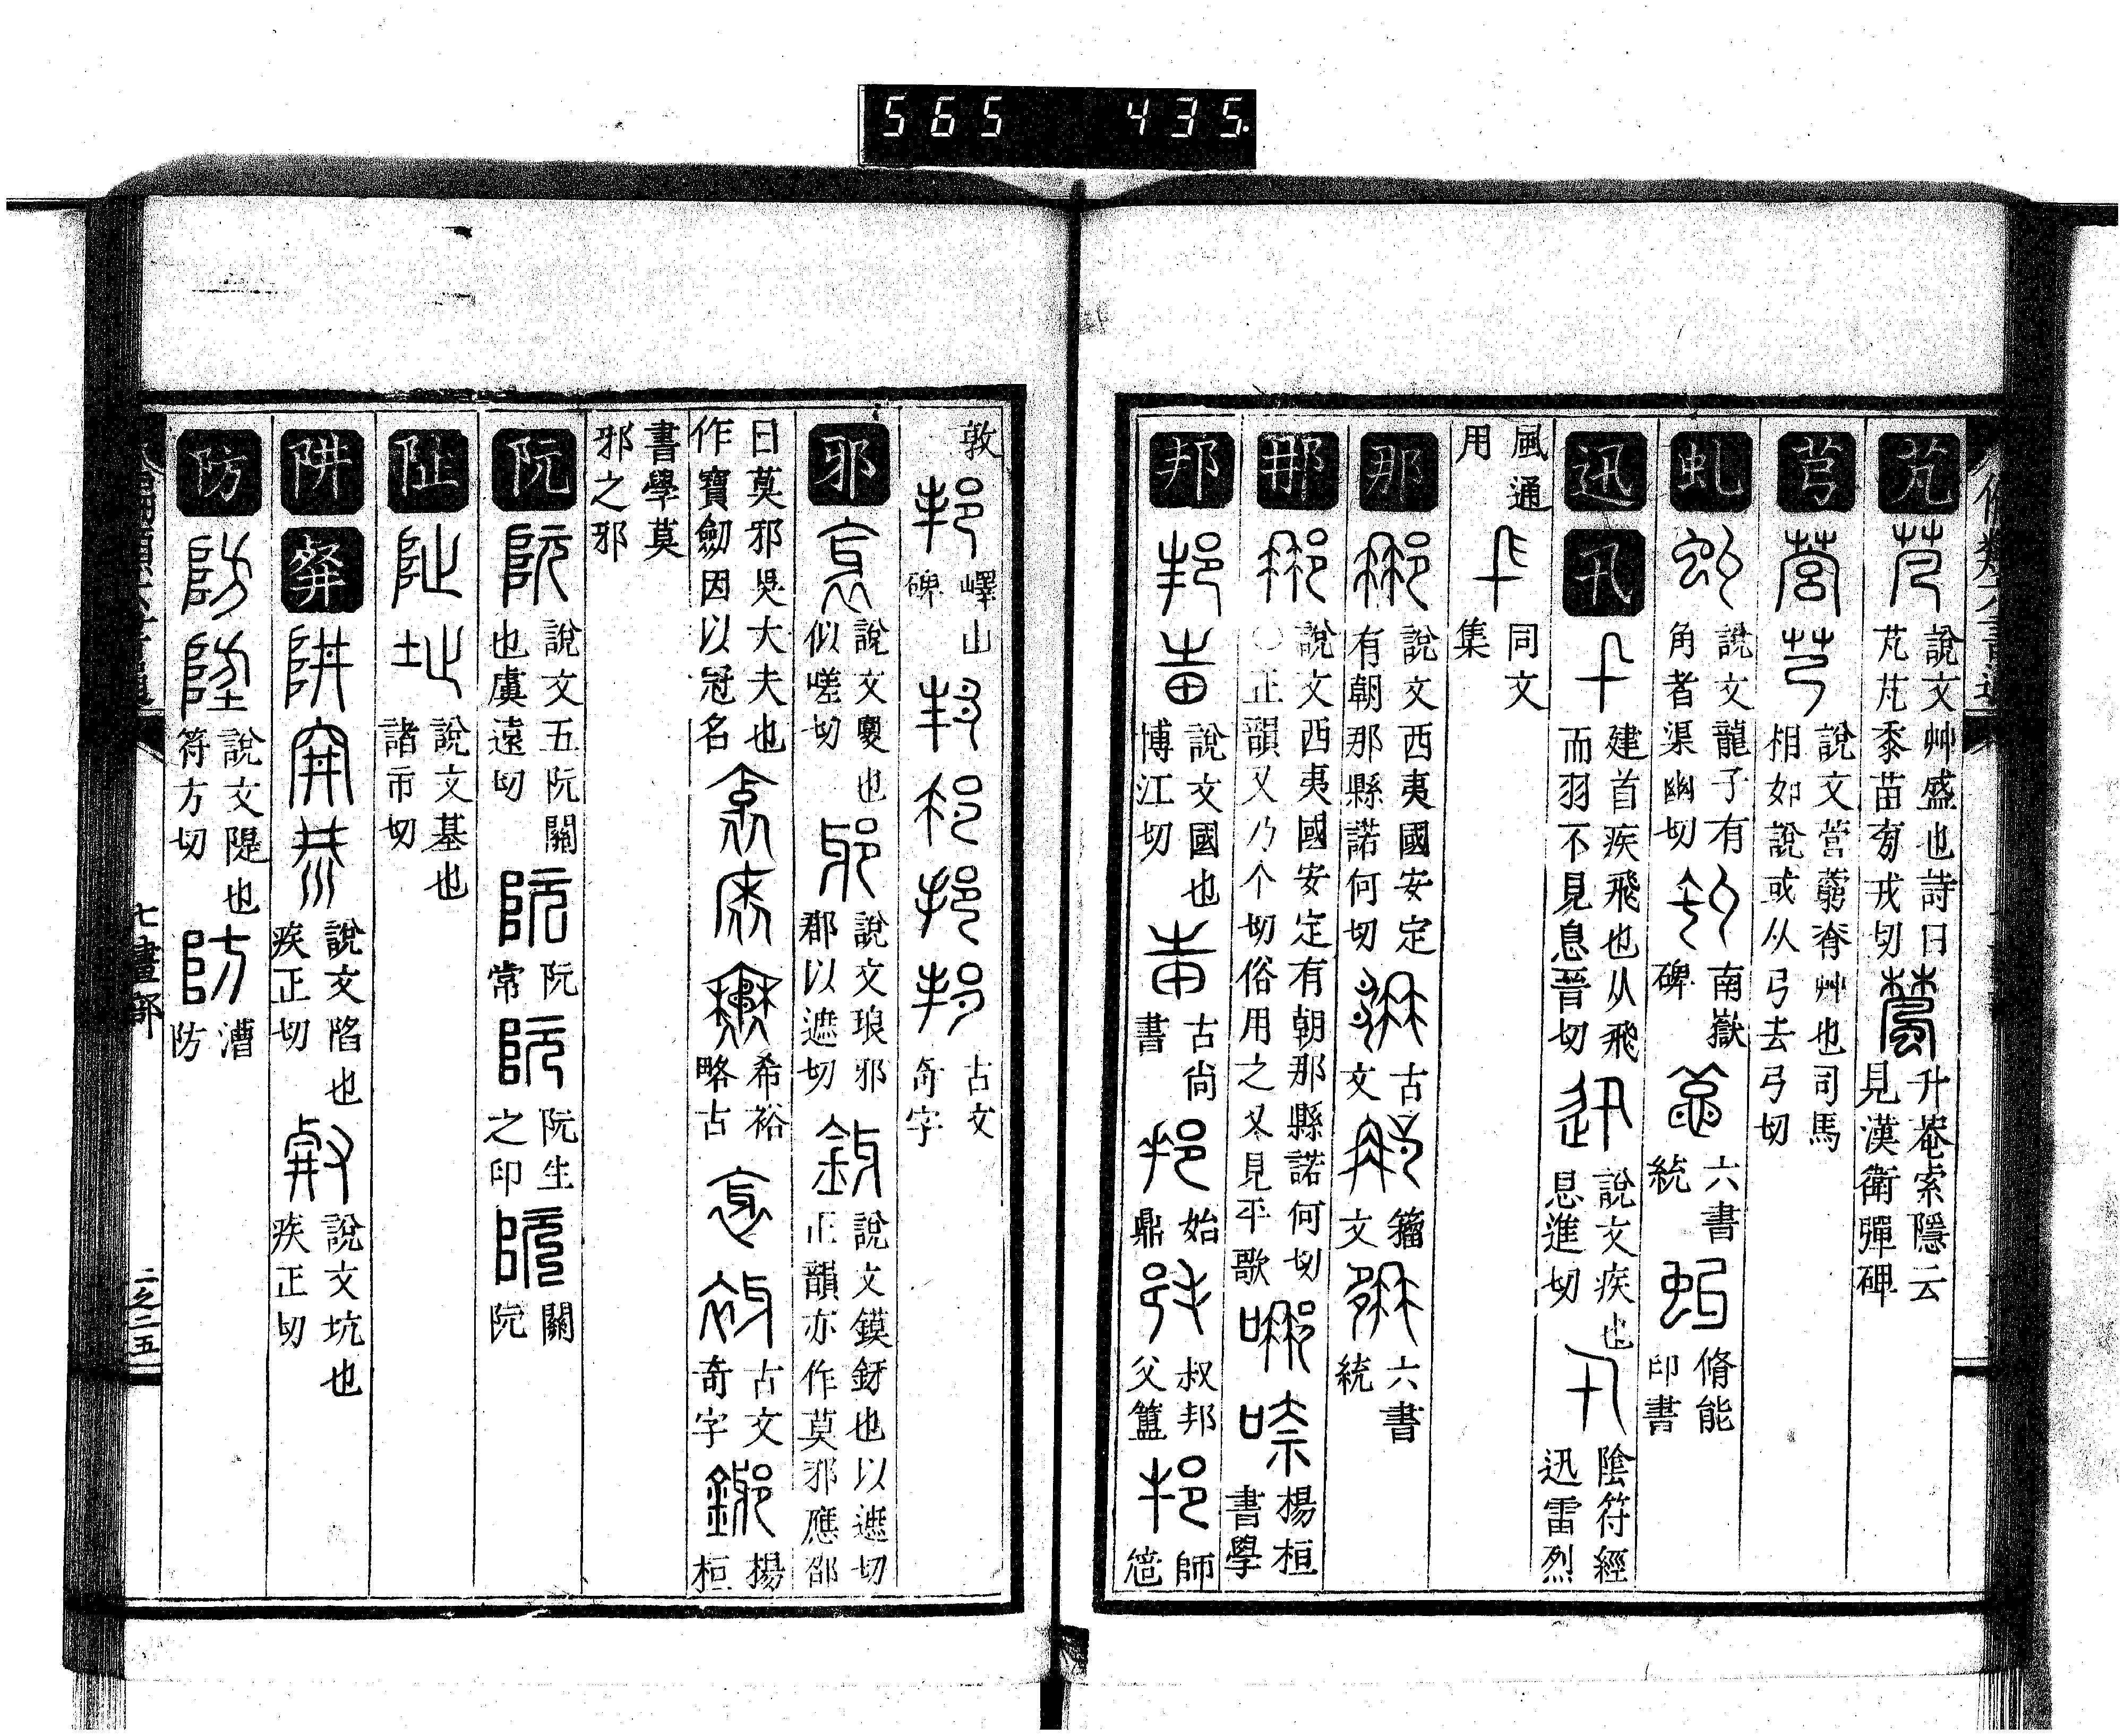 565 435
芃 說文艸盛也詩曰芃芃黍苗房戎切 升菴索隱云見漢衛彈碑
芎 說文营藭脊艸也司馬相如說或从弓去弓切
虬 說文龍子有角者渠幽切 南嶽碑 六書統 脩能印書
迅 卂 建首疾飛也从飛而羽不見息晉切 說文疾也息進切 陰符經迅雷烈
風通用 同文集
那 說文西夷國安定有朝那縣諾何切 古文 籀文 六書統
𨙻 說文西夷國安定有朝那縣諾何切〇正韻又乃个切俗用之又見平歌 楊桓書學
邦 說文國也博江切 古尚書 始鼎 叔邦父簠 師
敦 嶧山碑 古文奇字
邪 說文䙝也似嗟切 說文琅邪郡以遮切 說文鏌釾也以遮切正韻亦作莫邪應邵
曰莫邪吳大夫也作寶劒因以冠名 希裕略古 古文奇字 楊桓
書學莫邪之邪
阮 說文五阮關也虞遠切 阮常 阮生之印 關阮
阯 說文基也諸市切
阱 說文陷也疾正切 說文坑也疾正切
防 說文隄也符方切 漕防
七畫部
二之二五